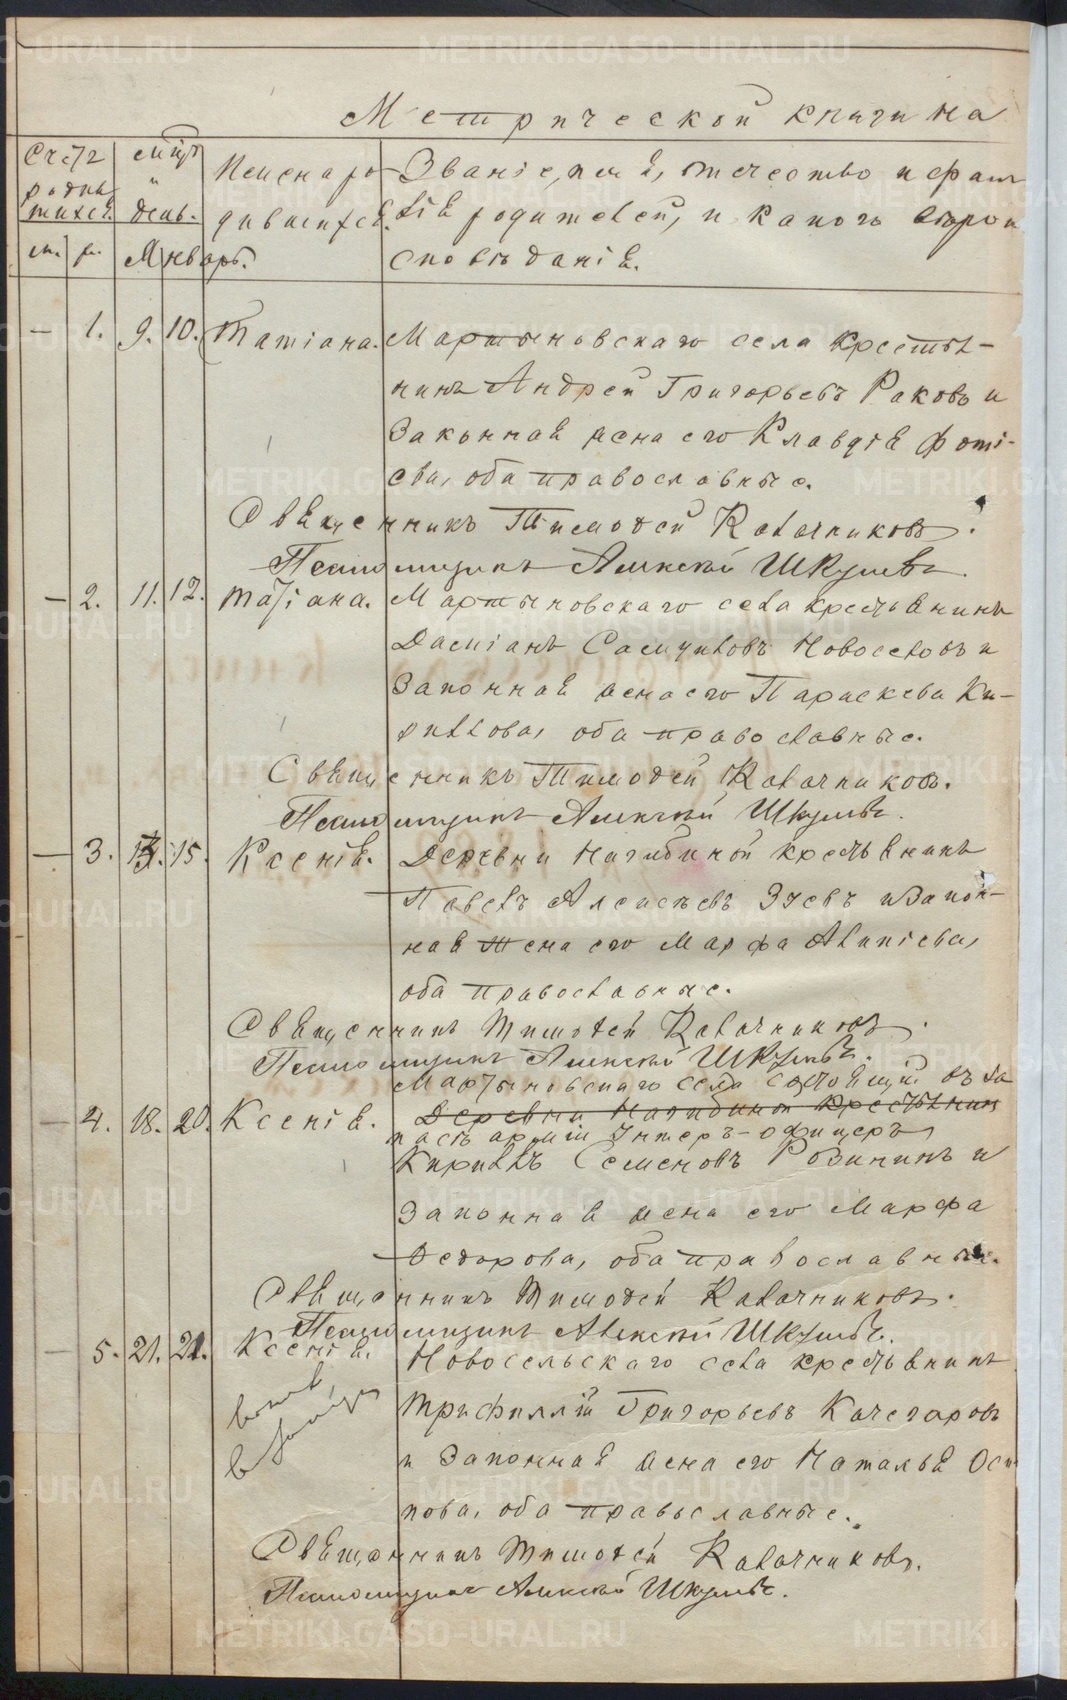 METRIKI.GASO-URAL.RU
Метрической книги на
Счетъ родившихся.
м. ж.
Мѣсяцъ и день.
Январь.
Имена родившихся.
Званіе, имя, отчество и фамилія родителей, и какого вѣроисповѣданія.
— 1. 9. 10. Татіана. Мартыновскаго села крестья-
нинъ Андрей Григорьевъ Раковъ и
законная жена его Клавдія Фоті-
ева, оба православные.
Священникъ Тимофей Калачниковъ.
Псаломщикъ Алексѣй Шкулевъ.
— 2. 11. 12. Татіана. Мартыновскаго села крестьянинъ
Даміанъ Самуиловъ Новоселовъ и
законная жена его Параскева Ки-
риллова, оба православные.
Священникъ Тимофей Калачниковъ.
Псаломщикъ Алексѣй Шкулевъ.
— 3. 15. Ксенія. Деревни Нагибиной крестьянинъ
Павелъ Алексѣевъ Зуевъ и закон-
ная жена его Марфа Алипіева,
оба православные.
Священникъ Тимофей Калачниковъ.
Псаломщикъ Алексѣй Шкулевъ.
Мартыновскаго села состоящій въ за
— 4. 18. 20. Ксенія. Деревни Нагибиной крестьянинъ
пасѣ арміи Унтеръ-офицеръ
Кириллъ Семеновъ Рябининъ и
законная жена его Марфа
Ѳедорова, оба православные.
Священникъ Тимофей Калачниковъ.
Псаломщикъ Алексѣй Шкулевъ.
— 5. 21. 21. Ксенія. Новосельскаго села крестьянинъ
Трифиллій Григорьевъ Качегаровъ
и законная жена его Наталья Оси
пова, оба православные.
Священникъ Тимофей Калачниковъ.
Псаломщикъ Алексѣй Шкулевъ.